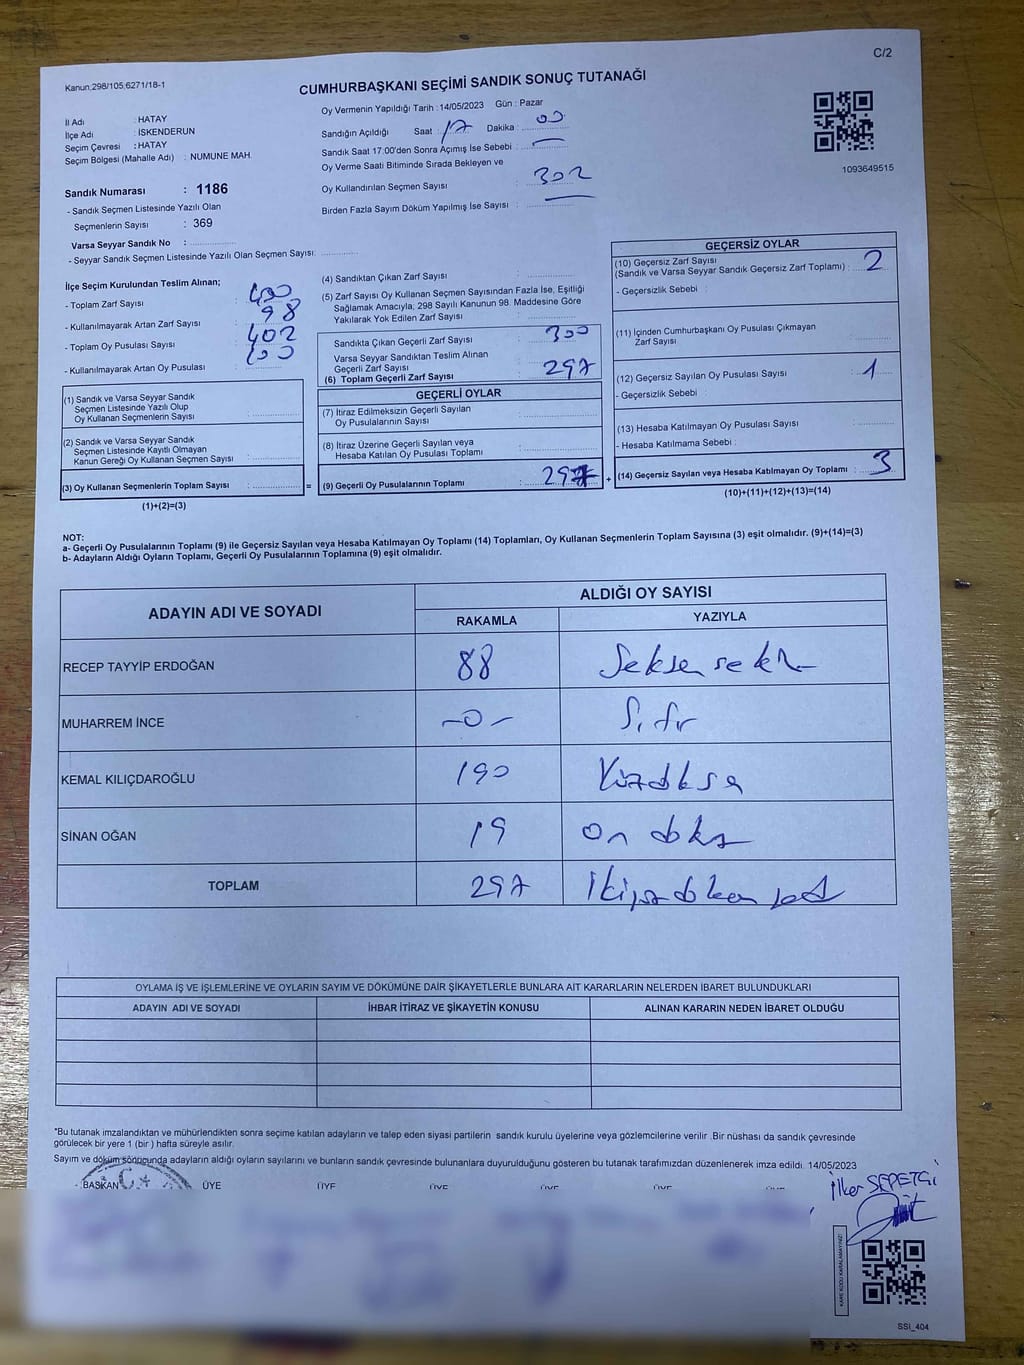 C/2
Kanun:298/105;6271/18-1
CUMHURBAŞKANI SEÇİMİ SANDIK SONUÇ TUTANAĞI
İl Adı : HATAY
İlçe Adı : İSKENDERUN
Seçim Çevresi : HATAY
Seçim Bölgesi (Mahalle Adı) : NUMUNE MAH.
Sandık Numarası : 1186
- Sandık Seçmen Listesinde Yazılı Olan
Seçmenlerin Sayısı : 369
Varsa Seyyar Sandık No :
- Seyyar Sandık Seçmen Listesinde Yazılı Olan Seçmen Sayısı:
Oy Vermenin Yapıldığı Tarih : 14/05/2023 Gün : Pazar
Sandığın Açıldığı Saat : 17 Dakika : 00
Sandık Saat 17:00'den Sonra Açımış İse Sebebi : —
Oy Verme Saati Bitiminde Sırada Bekleyen ve
Oy Kullandırılan Seçmen Sayısı : 302
Birden Fazla Sayım Döküm Yapılmış İse Sayısı : —
1093649515
İlçe Seçim Kurulundan Teslim Alınan;
- Toplam Zarf Sayısı : 400
- Kullanılmayarak Artan Zarf Sayısı : 98
- Toplam Oy Pusulası Sayısı : 402
- Kullanılmayarak Artan Oy Pusulası : 100
(1) Sandık ve Varsa Seyyar Sandık
Seçmen Listesinde Yazılı Olup
Oy Kullanan Seçmenlerin Sayısı :
(2) Sandık ve Varsa Seyyar Sandık
Seçmen Listesinde Kayıtlı Olmayan
Kanun Gereği Oy Kullanan Seçmen Sayısı :
(3) Oy Kullanan Seçmenlerin Toplam Sayısı : =
(1)+(2)=(3)
(4) Sandıktan Çıkan Zarf Sayısı :
(5) Zarf Sayısı Oy Kullanan Seçmen Sayısından Fazla İse, Eşitliği
Sağlamak Amacıyla; 298 Sayılı Kanunun 98. Maddesine Göre
Yakılarak Yok Edilen Zarf Sayısı :
Sandıkta Çıkan Geçerli Zarf Sayısı : 300
Varsa Seyyar Sandıktan Teslim Alınan
Geçerli Zarf Sayısı : 297
(6) Toplam Geçerli Zarf Sayısı
GEÇERLİ OYLAR
(7) İtiraz Edilmeksizin Geçerli Sayılan
Oy Pusulalarının Sayısı :
(8) İtiraz Üzerine Geçerli Sayılan veya
Hesaba Katılan Oy Pusulası Toplamı :
(9) Geçerli Oy Pusulalarının Toplamı : 297 +
GEÇERSİZ OYLAR
(10) Geçersiz Zarf Sayısı
(Sandık ve Varsa Seyyar Sandık Geçersiz Zarf Toplamı) : 2
- Geçersizlik Sebebi :
(11) İçinden Cumhurbaşkanı Oy Pusulası Çıkmayan
Zarf Sayısı :
(12) Geçersiz Sayılan Oy Pusulası Sayısı : 1
- Geçersizlik Sebebi :
(13) Hesaba Katılmayan Oy Pusulası Sayısı :
- Hesaba Katılmama Sebebi :
(14) Geçersiz Sayılan veya Hesaba Katılmayan Oy Toplamı : 3
(10)+(11)+(12)+(13)=(14)
NOT:
a- Geçerli Oy Pusulalarının Toplamı (9) ile Geçersiz Sayılan veya Hesaba Katılmayan Oy Toplamı (14) Toplamları, Oy Kullanan Seçmenlerin Toplam Sayısına (3) eşit olmalıdır. (9)+(14)=(3)
b- Adayların Aldığı Oyların Toplamı, Geçerli Oy Pusulalarının Toplamına (9) eşit olmalıdır.
ADAYIN ADI VE SOYADI ALDIĞI OY SAYISI
RAKAMLA YAZIYLA
RECEP TAYYİP ERDOĞAN 88 Seksensekiz
MUHARREM İNCE -0- Sıfır
KEMAL KILIÇDAROĞLU 190 Yüzdoksan
SİNAN OĞAN 19 On dokuz
TOPLAM 297 İkiyüzdoksanyedi
OYLAMA İŞ VE İŞLEMLERİNE VE OYLARIN SAYIM VE DÖKÜMÜNE DAİR ŞİKAYETLERLE BUNLARA AİT KARARLARIN NELERDEN İBARET BULUNDUKLARI
ADAYIN ADI VE SOYADI İHBAR İTİRAZ VE ŞİKAYETİN KONUSU ALINAN KARARIN NEDEN İBARET OLDUĞU
*Bu tutanak imzalandıktan ve mühürlendikten sonra seçime katılan adayların ve talep eden siyasi partilerin sandık kurulu üyelerine veya gözlemcilerine verilir .Bir nüshası da sandık çevresinde
görülecek bir yere 1 (bir ) hafta süreyle asılır.
Sayım ve döküm sonucunda adayların aldığı oyların sayılarını ve bunların sandık çevresinde bulunanlara duyurulduğunu gösteren bu tutanak tarafımızdan düzenlenerek imza edildi. 14/05/2023
BAŞKAN ÜYE ÜYE ÜYE ÜYE ÜYE
İlker SEPETÇİ
KARE KODU KARALAMAYINIZ!
SSI_404